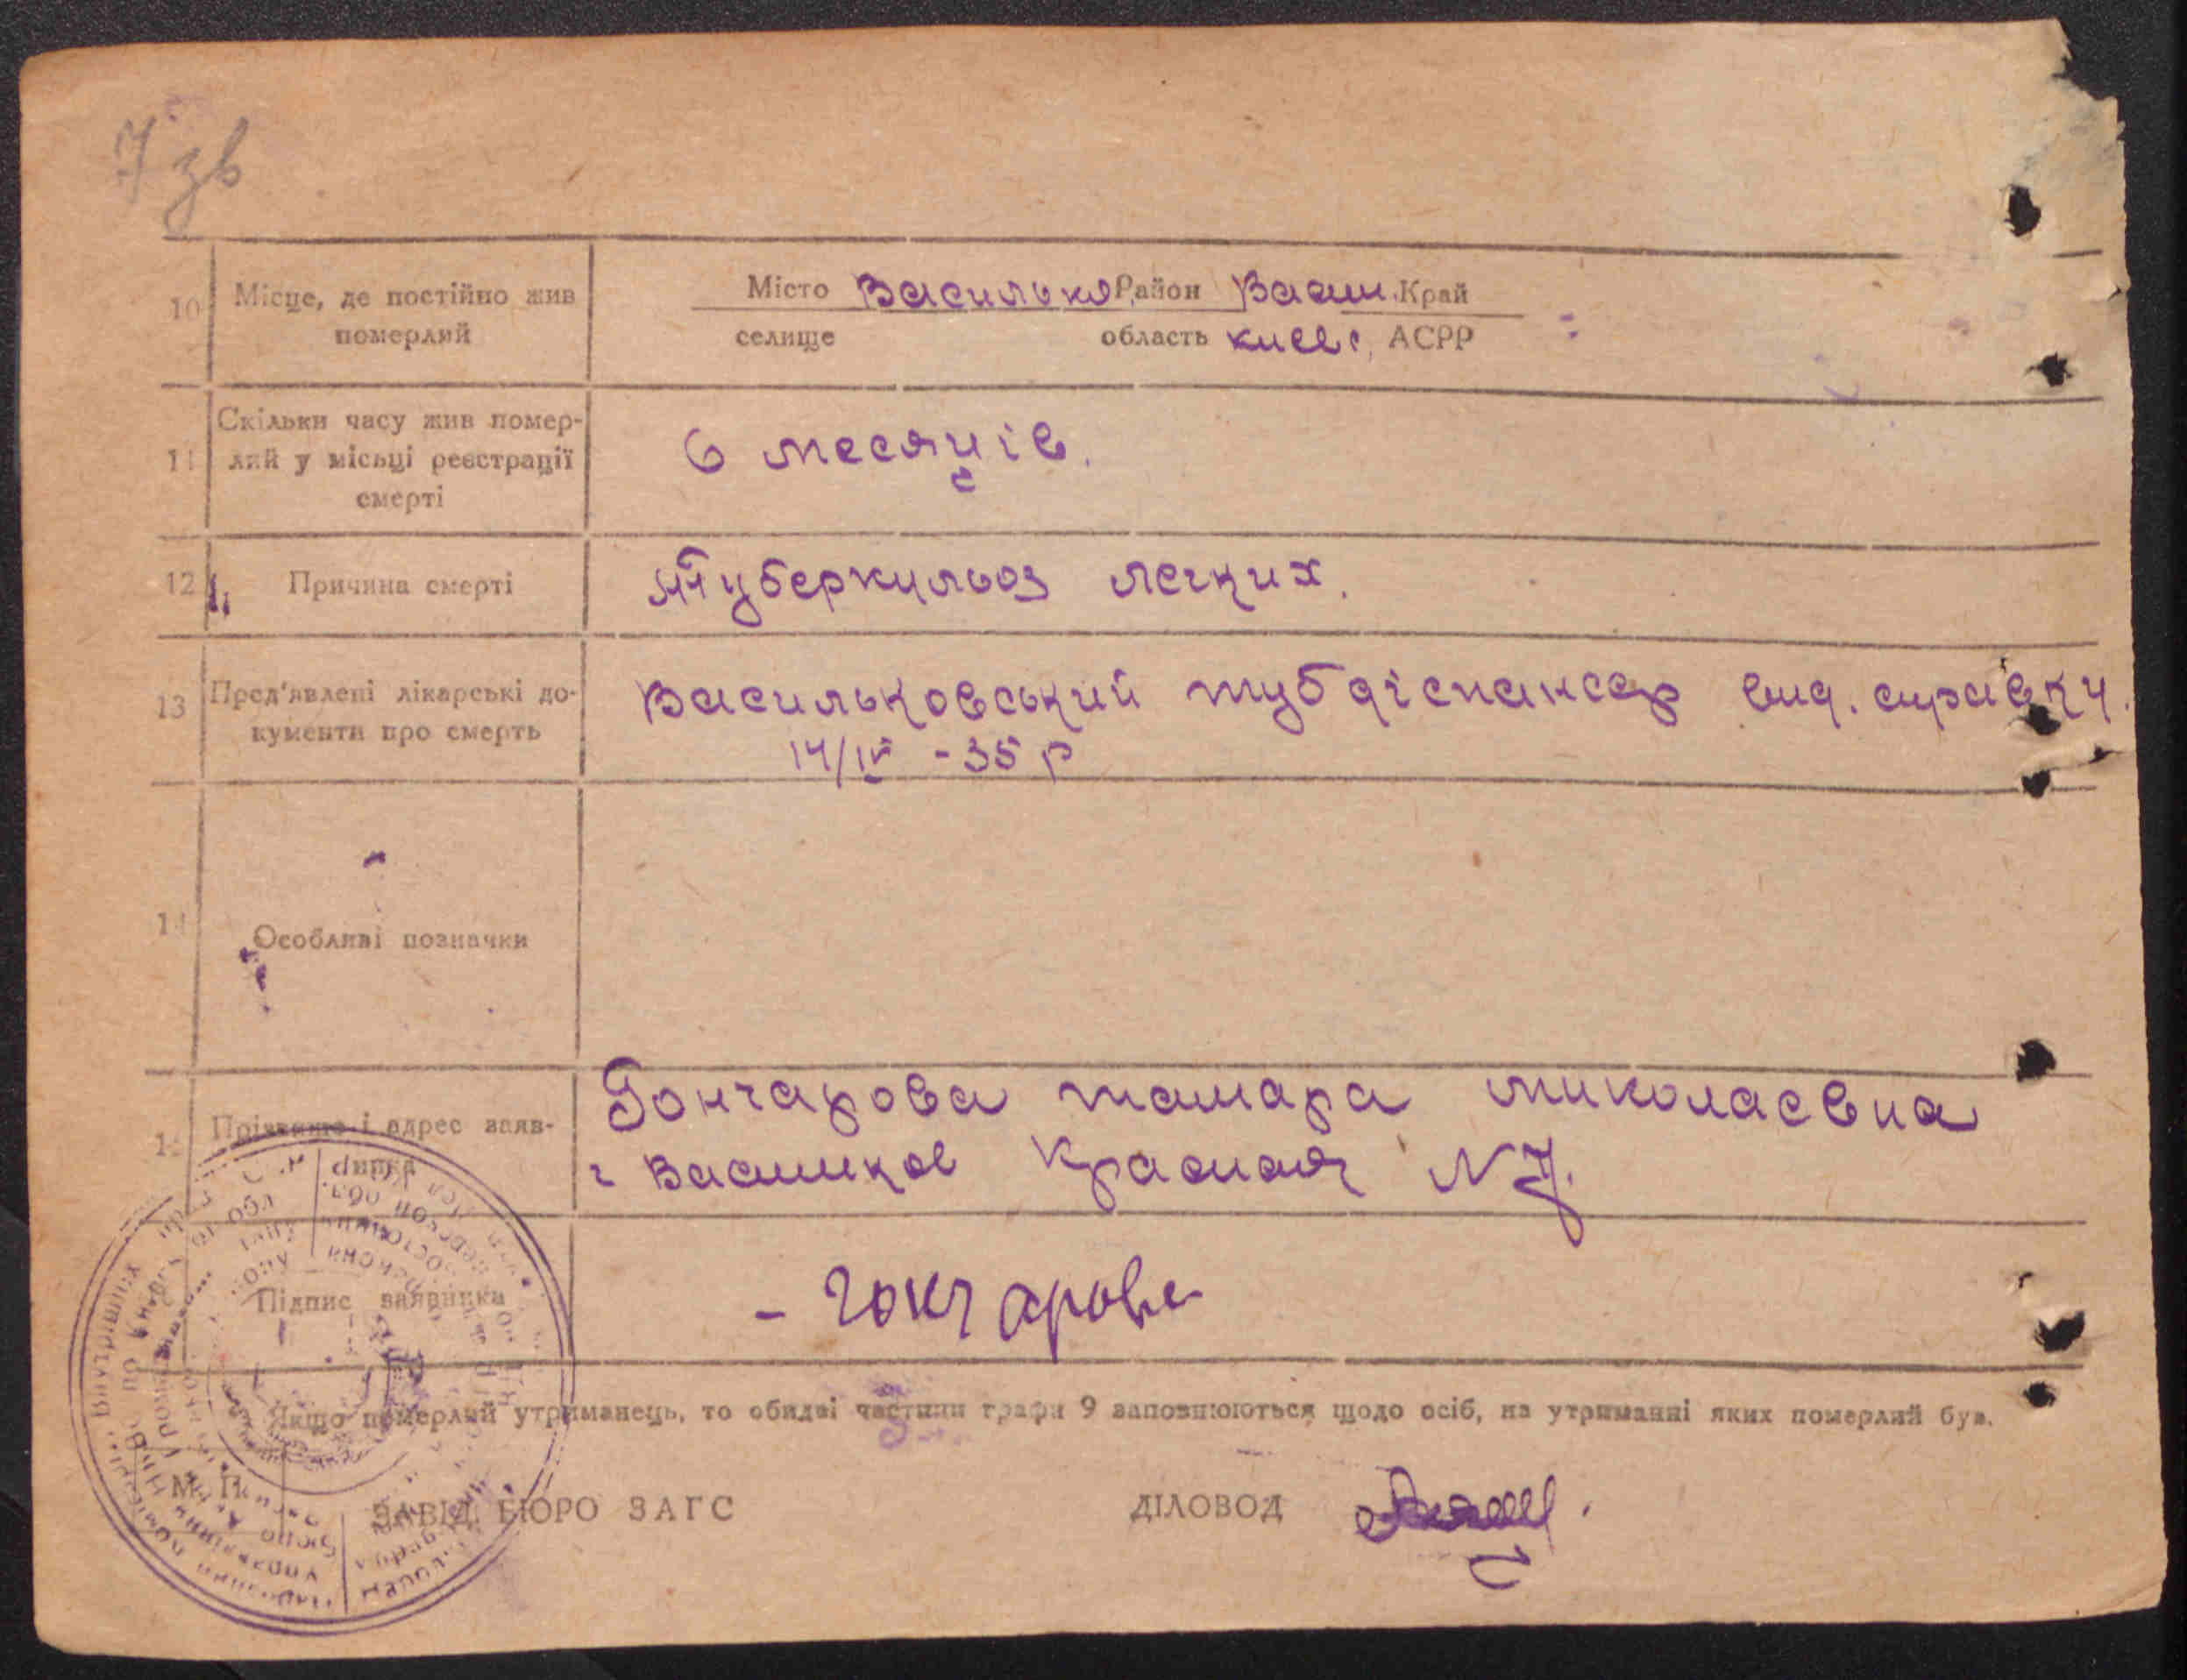 7 зв
10 Місце, де постійно жив померлий
Місто Васильков Район Васил. Край
селище область Киев. АСРР
11 Скільки часу жив помер-
лий у місьці реєстрації
смерті
6 месяців.
12 Причина смерті
Туберкульоз легких.
13 Пред'явлені лікарські до-
кументи про смерть
Васильковський тубдіспансер вид. справку.
14/IV - 35 р
14 Особливі позначки
Прізвище і адрес заяв-
ника
Гончарова Тамара Миколаевна
г Васильков Красная N 7.
Підпис заявника
- Гончарова
Якщо померлий утриманець, то обидві частини графи 9 заповнюються щодо осіб, на утриманні яких померлий був.
М. П.
ЗАВІД. БЮРО ЗАГС
ДІЛОВОД